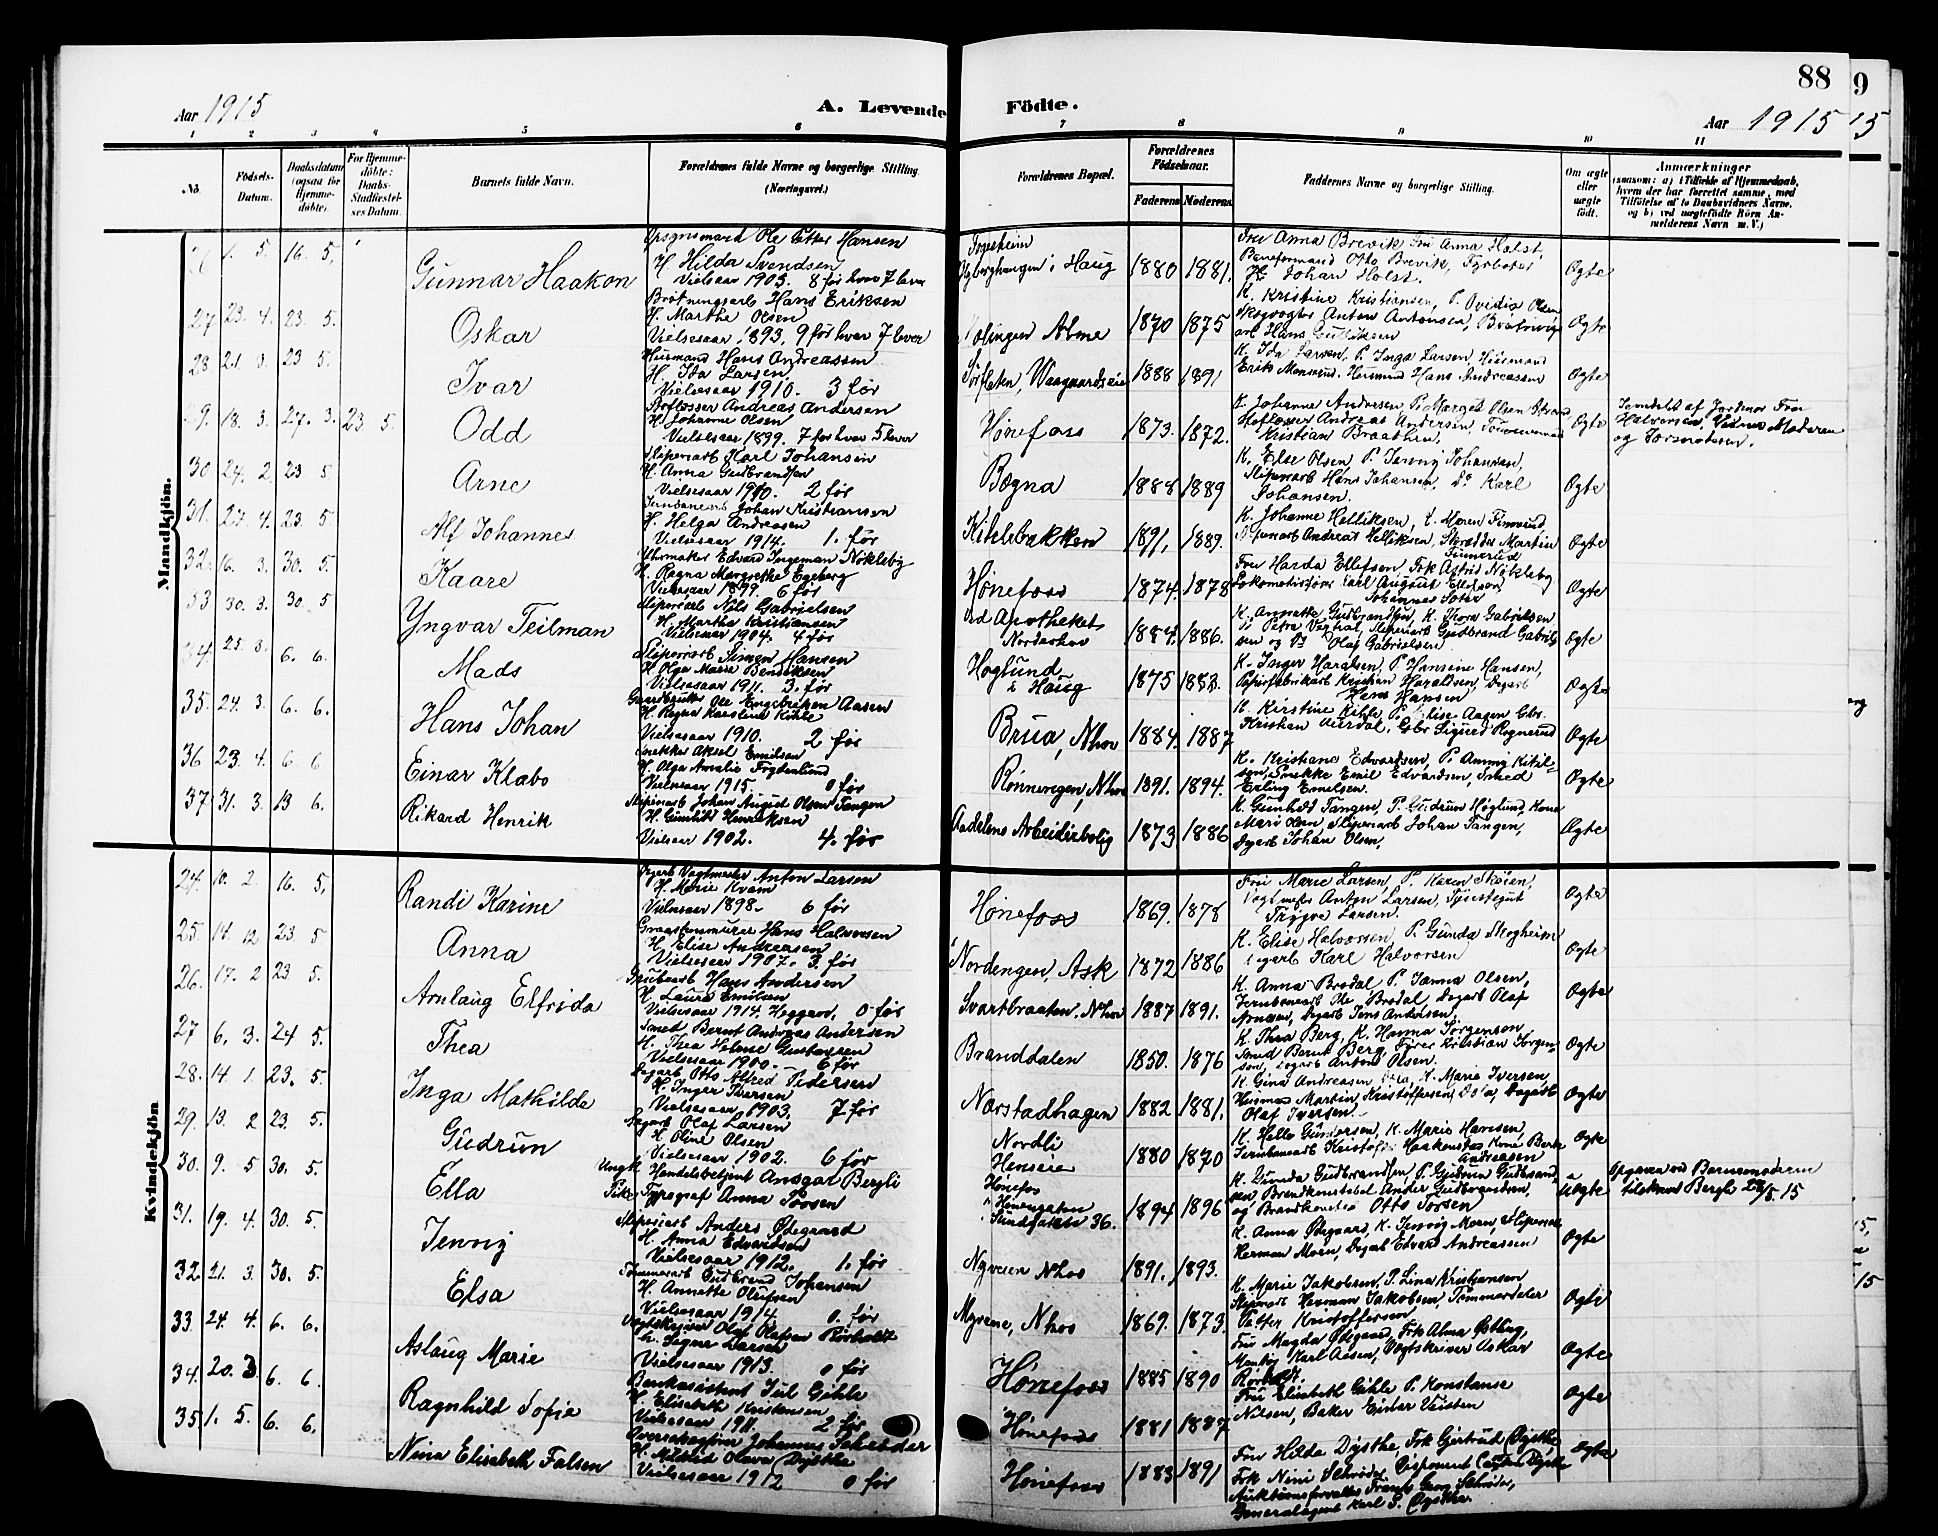 88
9
Aar 1915
A. Levende Födte.
Aar 1915
15
1 2 3 4 5 6 7 8 9 10 11
No.
Födsels-Datum.
Daabsdatum (ogsaa for Hjemme-döbte).
For Hjemme-döbte: Daabs-Stadfæstel-ses Datum.
Barnets fulde Navn.
Forældrenes fulde Navne og borgerlige Stilling. (Næringsvei.)
Forældrenes Bopæl.
Forældrenes Födselsaar.
Faderens Moderens
Faddernes Navne og borgerlige Stilling.
Om ægte eller uægte födt.
Anmærkninger
(saasom: a) i Tilfælde af Hjemmedaab,
hvem der har forrettet samme, med
Tilföielse af to Daabsvidners Navne.
og b) ved uægtefödte Börn An-
melderens Navn m. V.)
Mandkjön.
1. 5. 16. 5.
Gunnar Haakon
Opsynsmand Ole Petter Hansen
H. Hilda Svendsen
Vielsesaar 1905. 8 før hvor 7 lever
i Haug
1880 1881.
Fru Anna Brevik Fru Anna Holst,
Baneformand Otto Brevik, Fyrbøter
Johan Holst.
Ægte
27 23. 4. 23. 5.
Oskar
Brøtningsarb Hans Eriksen
H. Marthe Olsen
Vielsesaar 1893, 9 før hvor 7 lever
Alme
1870 1875
K. Kristine Kristiansen, P. Ovidia Olsen,
Skogvogter Anton Antonsen,
arb Hans
Ægte
28. 21. 3. 23 5.
Ivar
Husmand Hans Andreassen
H. Ida Larsen
Vielsesaar 1910. 3 før
1888 1891
K. Ida Larsen, P. Inga Larsen, Husmand
Erik Monserud, Husmand Hans Andreassen
Ægte
29. 18. 3. 27. 3. 23 5.
Odd
Andreas Andersen
H. Johanne Olsen
Vielsesaar 1899. 7 før hvor 5 lever
Hønefoss
1873. 1872.
K. Johanne Andersen P. Margit Olsen Strand
Andreas Andersen,
Kristian Braathen.
Ægte
af Jordmor Fru
Halvorsen, Vidner Moderen
og Jorsmoderen.
30 24. 2. 23 5
Arne
Sliperiarb Karl Johansen
H. Anna Gudbrandsen
Vielsesaar 1910. 2 før
Bægna
1888 1889
K. Else Olsen, P. Jenvig Johansen,
Sliperiarb Hans Johansen, Do Karl
Johansen.
Ægte
31. 27. 4. 23. 5
Alf Johannes
Jernbanearb Johan Kristiansen
H. Helga Andreasen
Vielsesaar 1914. 1. før
Kihlebakken
1891. 1889.
K. Johanne Helliksen,
Andreas Helliksen, Skrædder Martin
Finnerud
Ægte
32. 16. 3. 30. 5.
Kaare
Uhrmaker Edvard Ingeman Nøkleby
H. Ragna Margrethe Egeberg
Vielsesaar 1899. 6 før
Hønefoss
1874. 1878
Fru Harda Ellefsen, Frk Astrid Nøkleby
Karl August Ellefsen,
Johannes
Ægte
33 30. 3. 30. 5
Yngvar Teilman
Sliperiarb Nils Gabrielsen
H. Martha Kristiansen
Vielsesaar 1904. 4 før
Ved Apotheket
Norderhov
1884. 1886.
K. Annette Gudbrandsen, K. Thora Gabrielsen
Petra Sliperiarb Gudbrand Gabriel-
sen og Do Olaf Gabrielsen
Ægte
34. 25. 3. 6. 6.
Mads
Sliperiarb Simen Hansen
H. Olga Marie Bendiksen
Vielsesaar 1911. 3. før
Høglund
i Haug
1875 1883.
K. Inger Haralsen, P. Hansine Hansen,
Papirfabrikarb Kristian Haraldsen, Dagarb
Hans Hansen
Ægte
35. 24. 3. 6. 6.
Hans Johan
Gaardbruker Ole Engebriksen Aasen
H. Ragna Karoline Kihle
Vielsesaar 1910. 2 før
Brua, Nhov
1884. 1887
K. Kirstine Kihle, P. Elise Aasen Gbr.
Kristian Sigurd Rognerud
Ægte
36 23. 4. 6 6
Einar Klabo
Snekker Aksel Emilsen
H. Olga Amalie Frydenlund
Vielsesaar 1915. 0 før
Rønningen, Nhov
1891. 1894.
K. Kristiane Edvardsen, P. Anmig Kitil-
sen, Snekke Emil Edvardsen, Smed
Erling Emelsen.
Ægte
37. 31. 3. 13 6.
Rikard Henrik
Sliperiarb Johan August Olsen Tangen
H. Gunhild Henriksen
Vielsaar 1902. 4. før
Aadalens Arbeiderbolig
1873 1886
K. Gunhild Tangen, P. Gudrun Høglund, Kone
Mari Olsen, Sliperiarb Johan Tangen,
Dagarb Johan Olsen.
Ægte
Kvindekjön
24. 10. 2. 16. 5.
Randi Karine
Vagtmester Anton Larsen
H. Marie Kvam
Vielsesaar 1898- 6 før
Hønefoss
1869. 1878
Fru Marie Larsen, P. Karen Skøien,
Vagtmester Anton Larsen,
Trygve Larsen.
Ægte
25. 14. 12 23. 5
Anna
Graastensmurer Hans Halvorsen
H. Elise Andreersen
Vielsesaar 1907. 3. før
Nordengen, Ask
1872 1886
K. Elise Halvorsen, P. Gunda Skogheim
Dagarb Karl Halvorsen
Ægte
26. 17. 2 23 5.
Arnlaug Elfrida
Grubearb Hans Andersen
H. Laura Emilsen
Vielsesaar 1914, Heggen, 0 før
Svartbraaten, Nhov
1887 1891.
K. Anna Brodal, P. Janna Olsen,
Jernbanearb Ole Brodal, Dagarb Olaf
Arnesen, Dagarb Jens Andersen,
Ægte
27 6. 3. 24 5.
Thea
Smed Bernt Andreas Andersen
H. Thea Helene Gustavsen
Vielsesaar 1900. 6 før
Branddalen
1850. 1876
K. Thea Berg, K. Hanna Jørgenson,
Smed Bernt Berg, Fører Kristian Jørgen-
son, Dagarb Anton Olsen.
Ægte
28. 14 1. 23. 5.
Inga Mathilde
Dagarb Otto Alfred Pedersen
H. Inger Iversen
Vielsesaar 1903. 7 før
Nærstadhagen
1882 1881.
K. Gina Andreasen K. Marie Iversen,
Husmand Martin Kristoffersen, Dagarb
Olaf Iversen.
Ægte
29. 13. 2 23. 5.
Gudrun
Dagarb Olaf Larsen
H. Oline Olsen
Vielsesaar 1902. 6 før
Nordli
Henseie
1880 1870
K. Helle Gundersen, K. Marie Hansen,
Jernbanearb Kristofer Haakenstad Kone Berte
Andreasen
Ægte
30. 9. 5 30. 5.
Ella
Ungk. Handelsbetjent Ansgar Bergli
Pike Typograf Anna Torsen
Hønefos
Hønengaten
36.
1894 1896
K. Gunda Gudbrandsen, P. Gudrun Gudbrand-
sen, Brandkonstabel Ander Gudbrandsen,
og Brandkonstab Otto Torsen
Uægte
Opgaven ved Barnemoderen
tilskrevet Bergli 28/5. 15
31. 19. 4. 30. 5.
Jenvig
Sliperiarb Anders Ødegaard
H. Anna Edvardsen
Vielsesaar 1912. 1. før
Nyveien Nhov
1891. 1893.
K. Anna Ødegaard, K. Jenvig Moen, Sliperiarb
Herman Moen, Dagarb Edvard Andreassen
Ægte
32 21. 3. 30. 5.
Elsa
Tømmerarb Gudbrand Johansen
H. Annette Olufsen
Vielsesaar 1914. 0. før
Myrene, Nhov
1869. 1873.
K. Marie Jakobsen, P. Lina Kristiansen
Sliperiarb Herman Jakobsen, Tømmerdeler
Petter Kristoffersen.
Ægte
33. 24. 4. 6. 6.
Aslaug Marie
Vagtskriver Olaf Olafsen Rørholdt
H. Signe Larsen
Vielsesaar 1913. 0 før
Hønefoss
1885 1890
Fru Magda Ødegaard, Frk Alma Østling,
Karl Aasen, Vagtskriver Askar
Rørholdt.
Ægte
34. 20. 3. 6. 6.
Ragnhild Sofie
Bankasistent Jul Gihle
H. Elisabeth Kristensen
Vielsesaar 1911. 2 før
Hønefoss
1881 1887
Fru Elisabeth Gihle P. Konstanse
Nilsen, Baker Einar Veisten
Ægte
35. 1. 5. 6. 6.
Nina Elisabeth Falsen
Johannes Schrøder
H. Mildrid Olava Dysthe
Vielsesaar 1912 0 før
Hønefoss
1883 1891
Fru Hilda Dysthe, Frk Gjertrud Dysthe,
Frk Nini Schrøder, Disponent Carsten Dysthe
Auktionsforvalter Frants Georg Schrøder,
Generalagent Karl P. Dysthe.
Ægte
15,
15